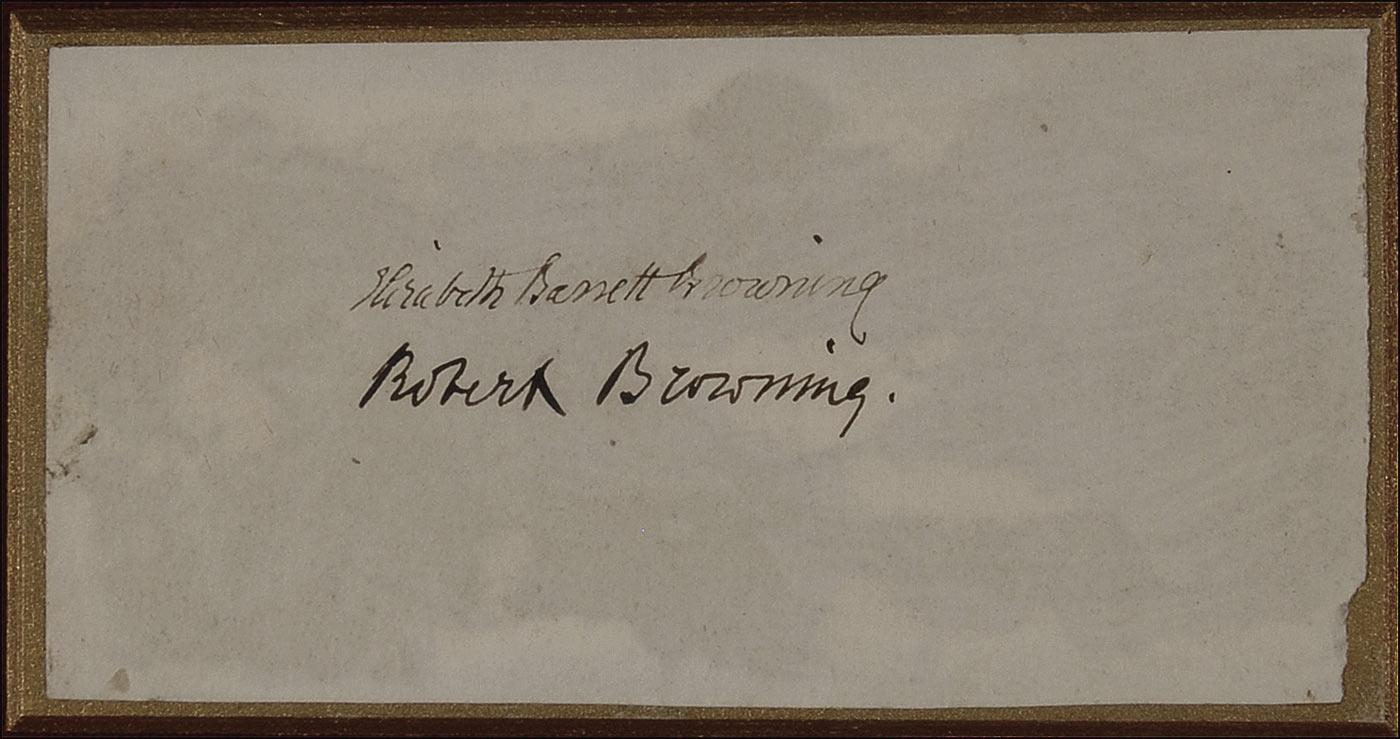 Elizabeth Barrett Browning
Robert Browning.